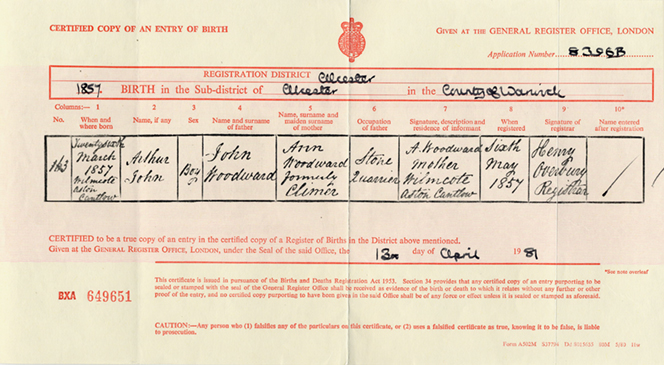 CERTIFIED COPY OF AN ENTRY OF BIRTH
GIVEN AT THE GENERAL REGISTER OFFICE, LONDON
Application Number 8396B
REGISTRATION DISTRICT Alcester
1857. BIRTH in the Sub-district of Alcester in the County of Warwick
Columns:— 1 2 3 4 5 6 7 8 9 10*
No. When and where born Name, if any Sex Name and surname of father Name, surname and maiden surname of mother Occupation of father Signature, description and residence of informant When registered Signature of registrar Name entered after registration
Twenty sixth March 1857 Wilmcote Aston Cantlow Arthur John Boy John Woodward Ann Woodward formerly Climer Stone Quarrier A. Woodward Mother Wilmcote Aston Cantlow Sixth May 1857 Henry Overbury Registrar
CERTIFIED to be a true copy of an entry in the certified copy of a Register of Births in the District above mentioned.
Given at the GENERAL REGISTER OFFICE, LONDON, under the Seal of the said Office, the 13th day of April 1981
*See note overleaf
BXA 649651
This certificate is issued in pursuance of the Births and Deaths Registration Act 1953. Section 34 provides that any certified copy of an entry purporting to be
sealed or stamped with the seal of the General Register Office shall be received as evidence of the birth or death to which it relates without any further or other
proof of the entry, and no certified copy purporting to have been given in the said Office shall be of any force or effect unless it is sealed or stamped as aforesaid.
CAUTION:—Any person who (1) falsifies any of the particulars on this certificate, or (2) uses a falsified certificate as true, knowing it to be false, is liable
to prosecution.
Form A502M